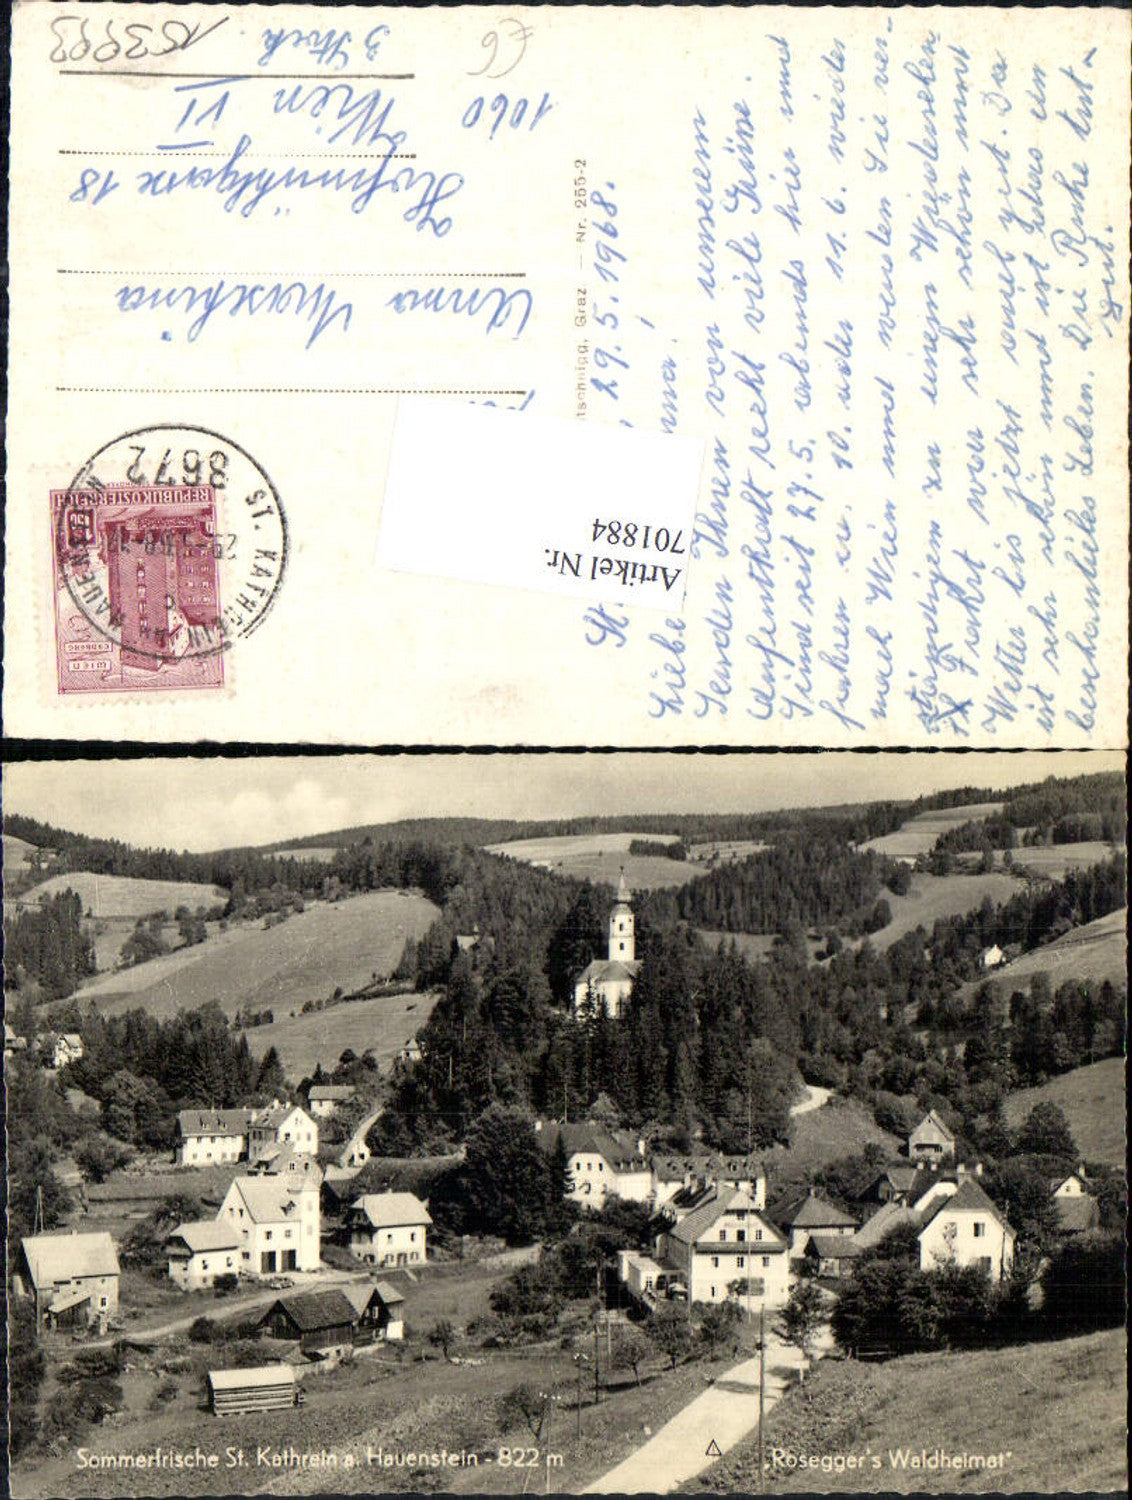 153993
3. Stock.
£6
1060
Wien VI
Hofmühlgasse 18
Anna
tschnigg, Graz — Nr. 255-2
8672
ST. KATHREIN AM HAUENSTEIN
REPUBLIK ÖSTERREICH
WIEN
ERDBERG
Artikel Nr.
701884
St. , 29. 5. 1968.
Liebe nna!
Senden Ihnen von unserem
Aufenthalt recht viele Grüße.
Sind seit 27. 5. abends hier und
fahren am 10. oder 11. 6. wieder
nach Wien und werden Sie ver-
ständigen zu einem Wiedersehen.
Fahrt war sehr schön und
Wetter bis jetzt auch gut. Da
ist sehr schön und ist etwas ein
beschauliches Leben. Die Ruhe tut
gut.
Sommerfrische St. Kathrein a. Hauenstein - 822 m
„Rosegger's Waldheimat"